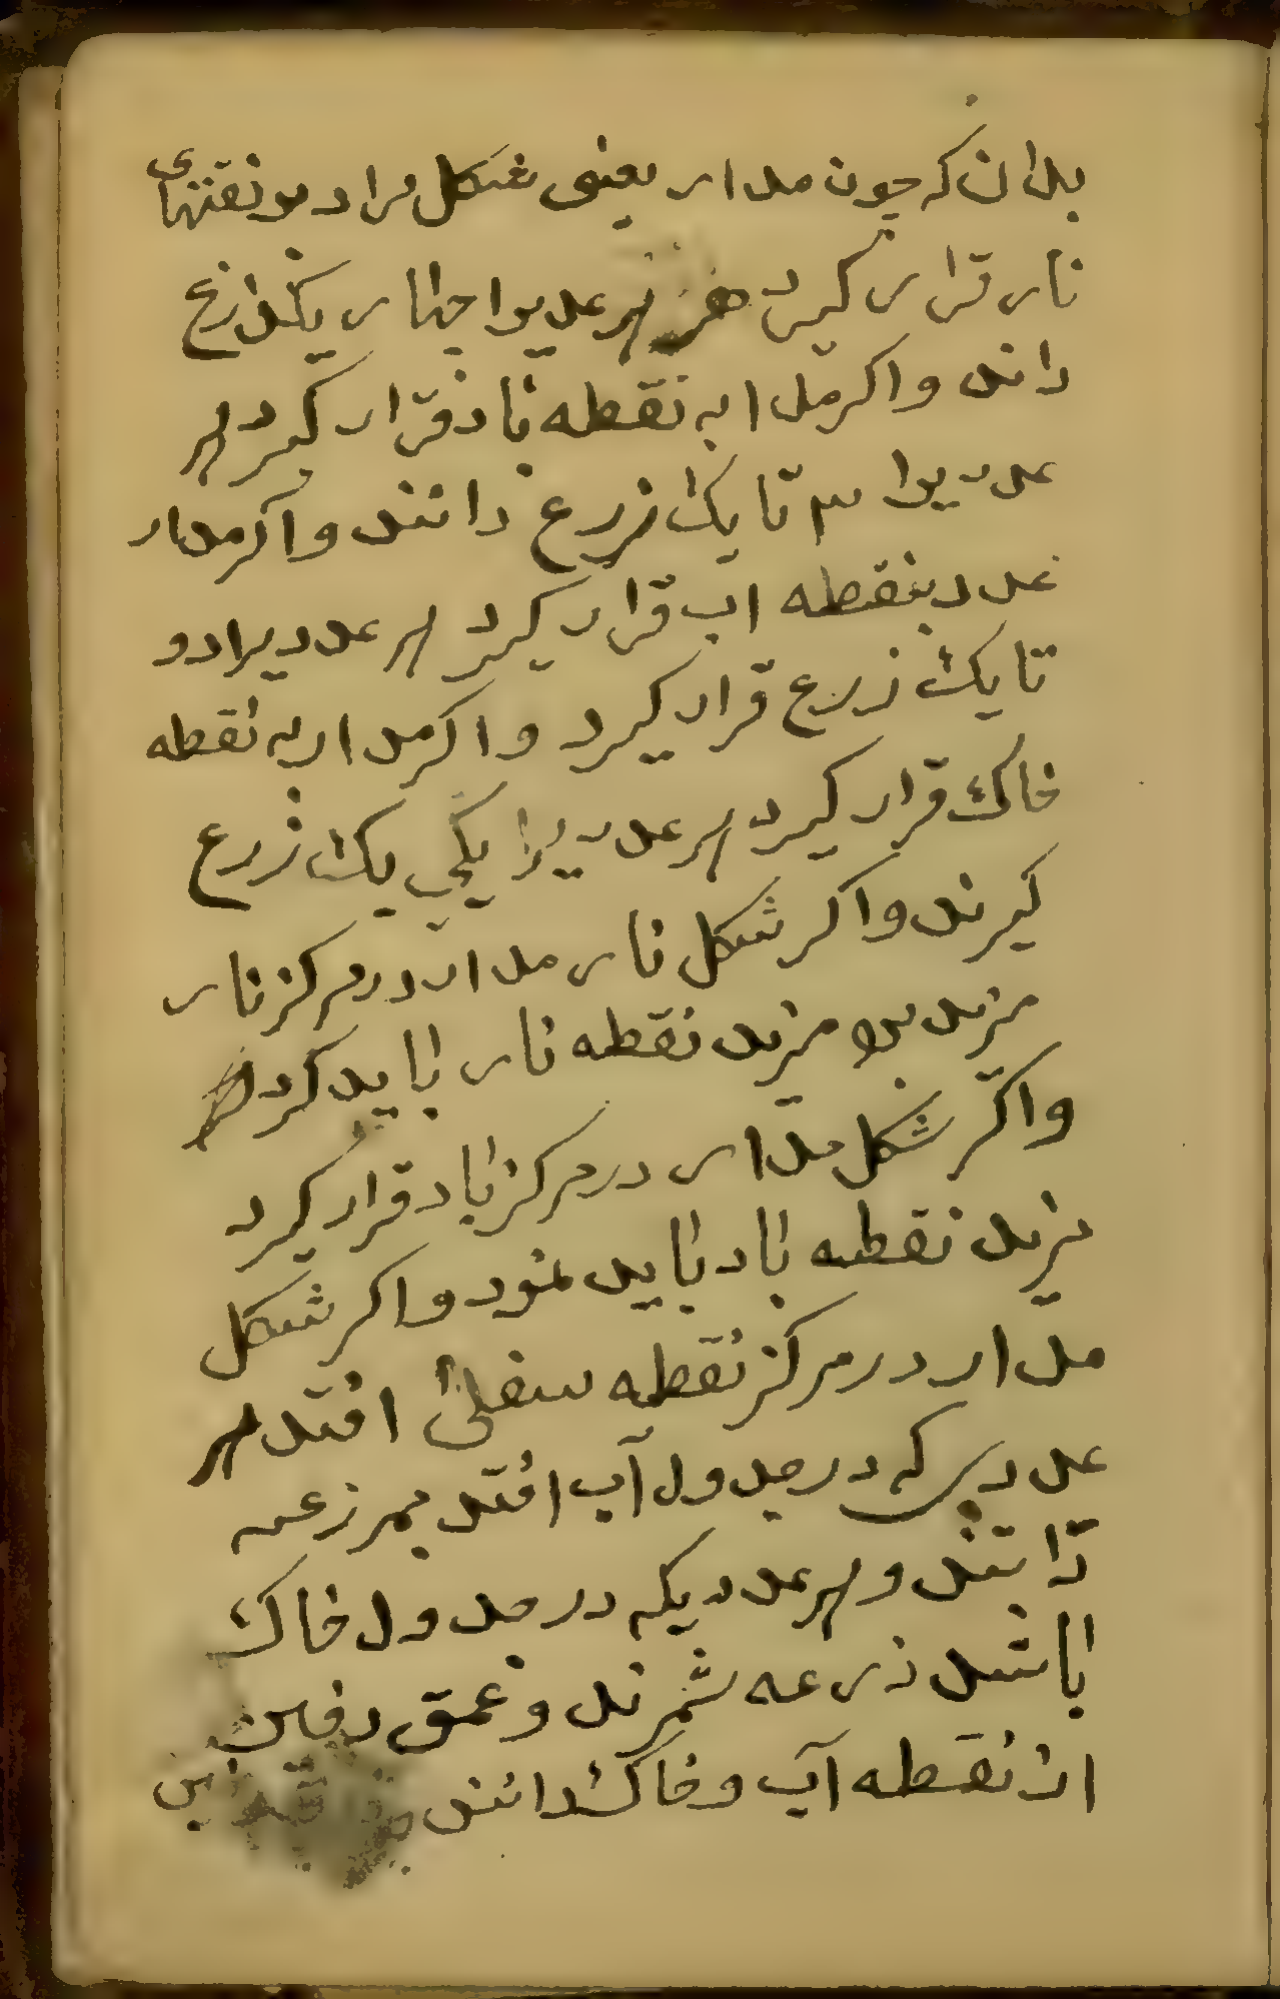 بدان که چون مدار یعنی شکل مراد بر نقتهای
نار قرار کیرد هر عدیرا چهار یکذارغ
داند واکر مدار به نقطه باد قرار کیرد هر
عدیرا ۳ تا یک زرع دانند واکر مدار
عدد بنقطه اب قرار کیرد هر عددیرا دو
تا یک زرع قرار کیرد واکر مدار به نقطه
خاک قرار کیرد هر عدیرا یکی یک زرع
کیرند واکر شکل نار مدار در مرکز نار
مزید بر مزید نقطه نار باید کرد
واکر شکل مدار در مرکز باد قرار کیرد
مزید نقطه باد باید نمود واکر شکل
مدار در مرکز نقطه سفلی افتد هر
عددی که در جدول آب افتد زرعه
دانند وهر عددیکه در جدول خاک
باشد ذرعه شمرند وعمق دفین
از نقطه آب وخاک دانند این